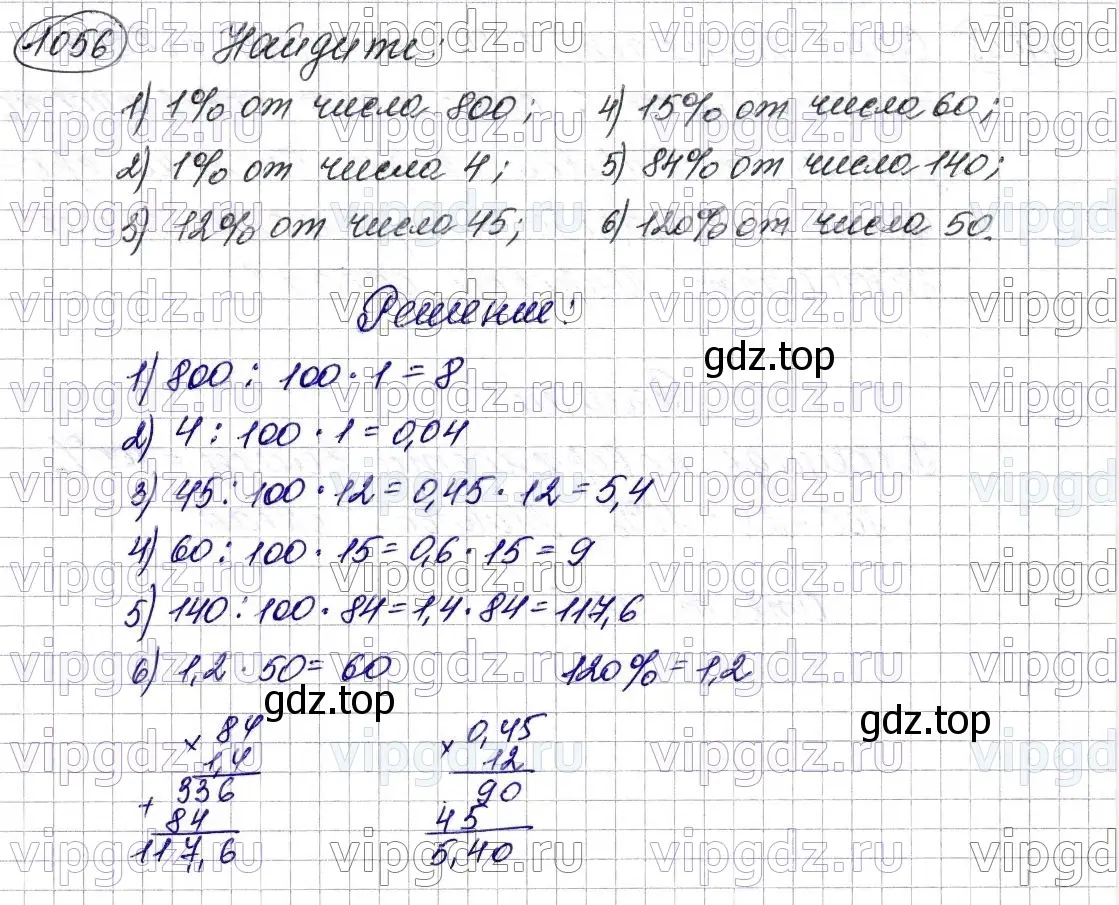 1056 Найдите:
1) 1% от числа 800; 4) 15% от числа 60;
2) 1% от числа 4; 5) 84% от числа 140;
3) 12% от числа 45; 6) 120% от числа 50.
Решение:
1) 800 : 100 · 1 = 8
gdz.top
2) 4 : 100 · 1 = 0,04
3) 45 : 100 · 12 = 0,45 · 12 = 5,4
4) 60 : 100 · 15 = 0,6 · 15 = 9
5) 140 : 100 · 84 = 1,4 · 84 = 117,6
6) 1,2 · 50 = 60 120% = 1,2
gdz.top
gdz.top
× 84 × 0,45
1,4 12
336 90
+ 84 45
117,6 5,40
vipgdz.ru